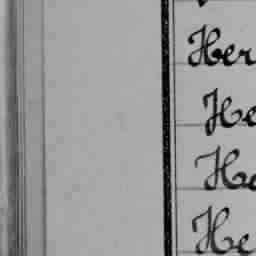 Her
He
He
He